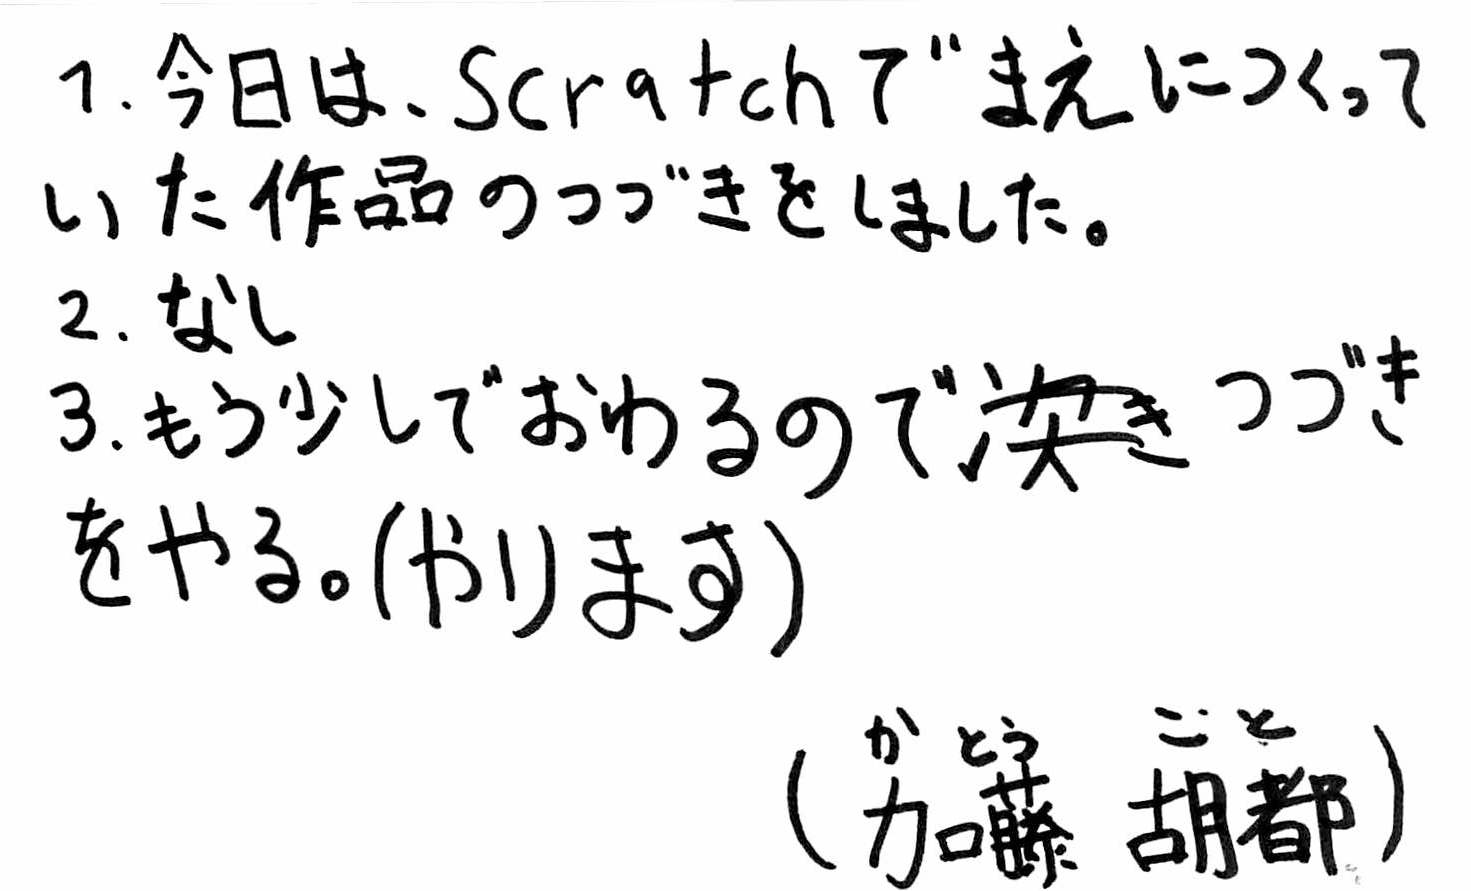 1.今日は、Scratchでまえにつくって
いた作品のつづきをしました。
2.なし
3.もう少しでおわるのでつづき
をやる。(やります)
かとう ごと
(加藤 胡都)